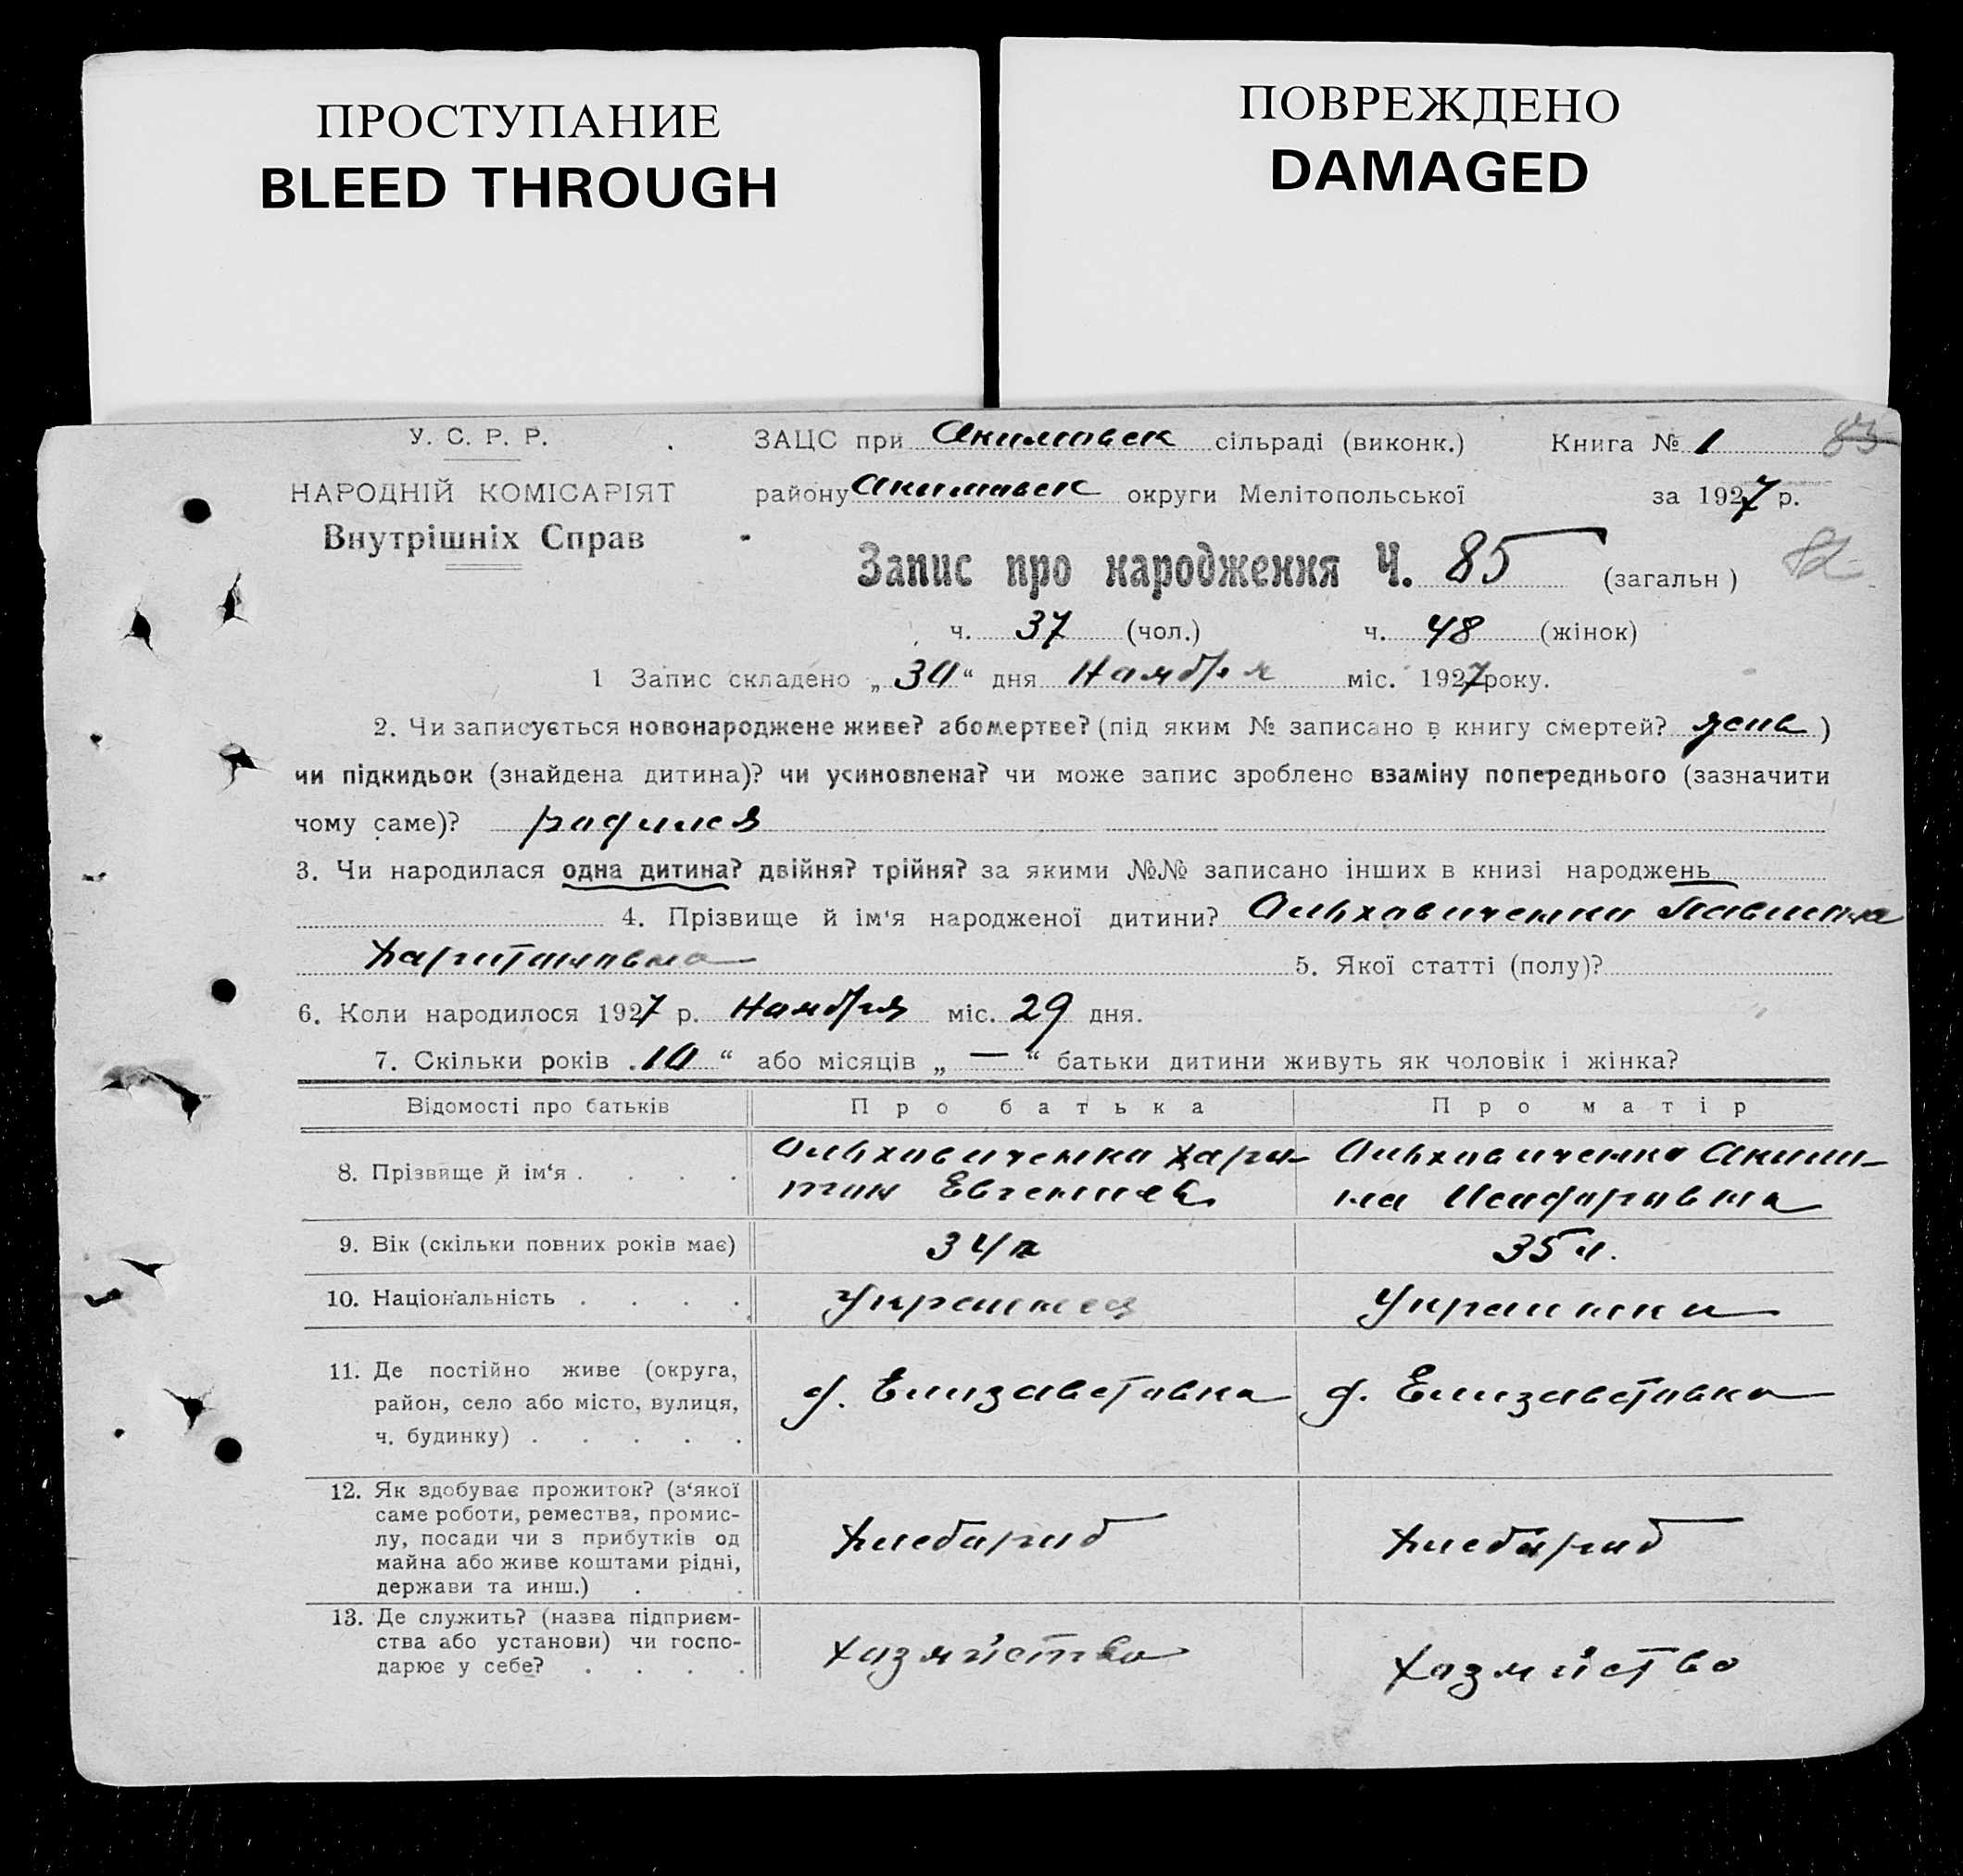 ПРОСТУПАНИЕ
BLEED THROUGH
ПОВРЕЖДЕНО
DAMAGED
У. С. Р. Р.
НАРОДНІЙ КОМІСАРІЯТ
Внутрішніх Справ
ЗАЦС при Акимовск сільраді (виконк.) Книга № 1 83
району Акимовск округи Мелітопольської за 1927 р.
Запис про народження Ч. 85 (загальн) 82
ч. 37 (чол.) ч. 48 (жінок)
1 Запис складено „30“ дня Ноября міс. 1927 року.
2. Чи записується новонароджене живе? або мертве? (під яким № записано в книгу смертей? )
чи підкидьок (знайдена дитина)? чи усиновлена? чи може запис зроблено взаміну попереднього (зазначити
чому саме)? родился
3. Чи народилася одна дитина? двійня? трійня? за якими №№ записано інших в книзі народжень
4. Прізвище й ім‘я народженої дитини? Ольховиченко Павлина
Харитоновна 5. Якої статті (полу)?
6. Коли народилося 1927 р. Ноября міс. 29 дня.
7. Скільки років „10“ або місяців „—“ батьки дитини живуть як чоловік і жінка?
Відомості про батьків Про батька Про матір
8. Прізвище й ім‘я . . . . Ольховиченко Хари- Ольховиченко Акили-
тон Евгениев на Исидоровна
9. Вік (скільки повних років має) 34 л 35 л.
10. Національність . . . . Украинец Украинка
11. Де постійно живе (округа,
район, село або місто, вулиця,
ч. будинку) . . . . .
д. Елизаветовка д. Елизаветовка
12. Як здобуває прожиток? (з‘якої
саме роботи, ремества, промис-
лу, посади чи з прибутків од
майна або живе коштами рідні,
держави та инш.) . . .
Хлебороб Хлебороб
13. Де служить? (назва підприєм-
ства або установи) чи госпо-
дарює у себе? . . . .
Хозяйство Хозяйство